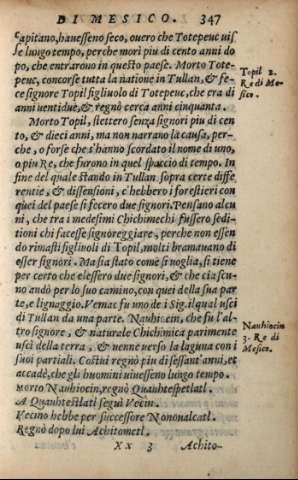 DI MESICO. 347
Capitano, hauesseno seco, ouero che Totepeuc uis
se luogo tempo, perche mori piu di cento anni do
po, che entrarono in questo paese. Morto Tote-
peuc, concorse tutta la natione in Tullan, & fe-
ce signore Topil figliuolo di Totepeuc, che era di
anni uentidue, & regnò cerca anni cinquanta.
Topil 2.
Re di Me
sico.
Morto Topil, stettero senza signori piu di cen
to, & dieci anni, ma non narrano la causa, per-
che, o forse che s'hanno scordato il nome di uno,
o piu Re, che furono in quel spaccio di tempo. In
fine del quale stando in Tullan sopra certe diffe
rentie, & dissensioni, c'hebbero i forestieri con
quei del paese si fecero due signori. Pensano alcu
ni, che tra i medesimi Chichimechi fussero sedi-
tioni chi facesse signoreggiare, perche non essen
do rimasti figliuoli di Topil, molti bramauano di
esser signori. Ma sia stato come si uoglia, si tiene
per certo che elessero due signori, & che ciascu-
no andò per lo suo camino, con quei della sua par
te, e lignaggio. Vemac fu uno de i Sig. il qual uscì
di Tullan da una parte. Nauhiocin, che fu l'al-
tro signore, & naturale Chichimica parimente
uscì della terra, & uenne uerso la laguna con i
suoi partiali. Costui regnò piu di sessant'anni, et
accadè, che gli huomini uiuesseno luogo tempo.
Nauhiocin
3. Re di
Mesico.
MORTO Nauhiocin, regnò Quauhtespetlatl.
A Quauhtestlatl seguì Vecin.
Vecino hebbe per successore Nonoualcatl.
Regnò dopo lui Achitometl.
Xx 3 Achito-